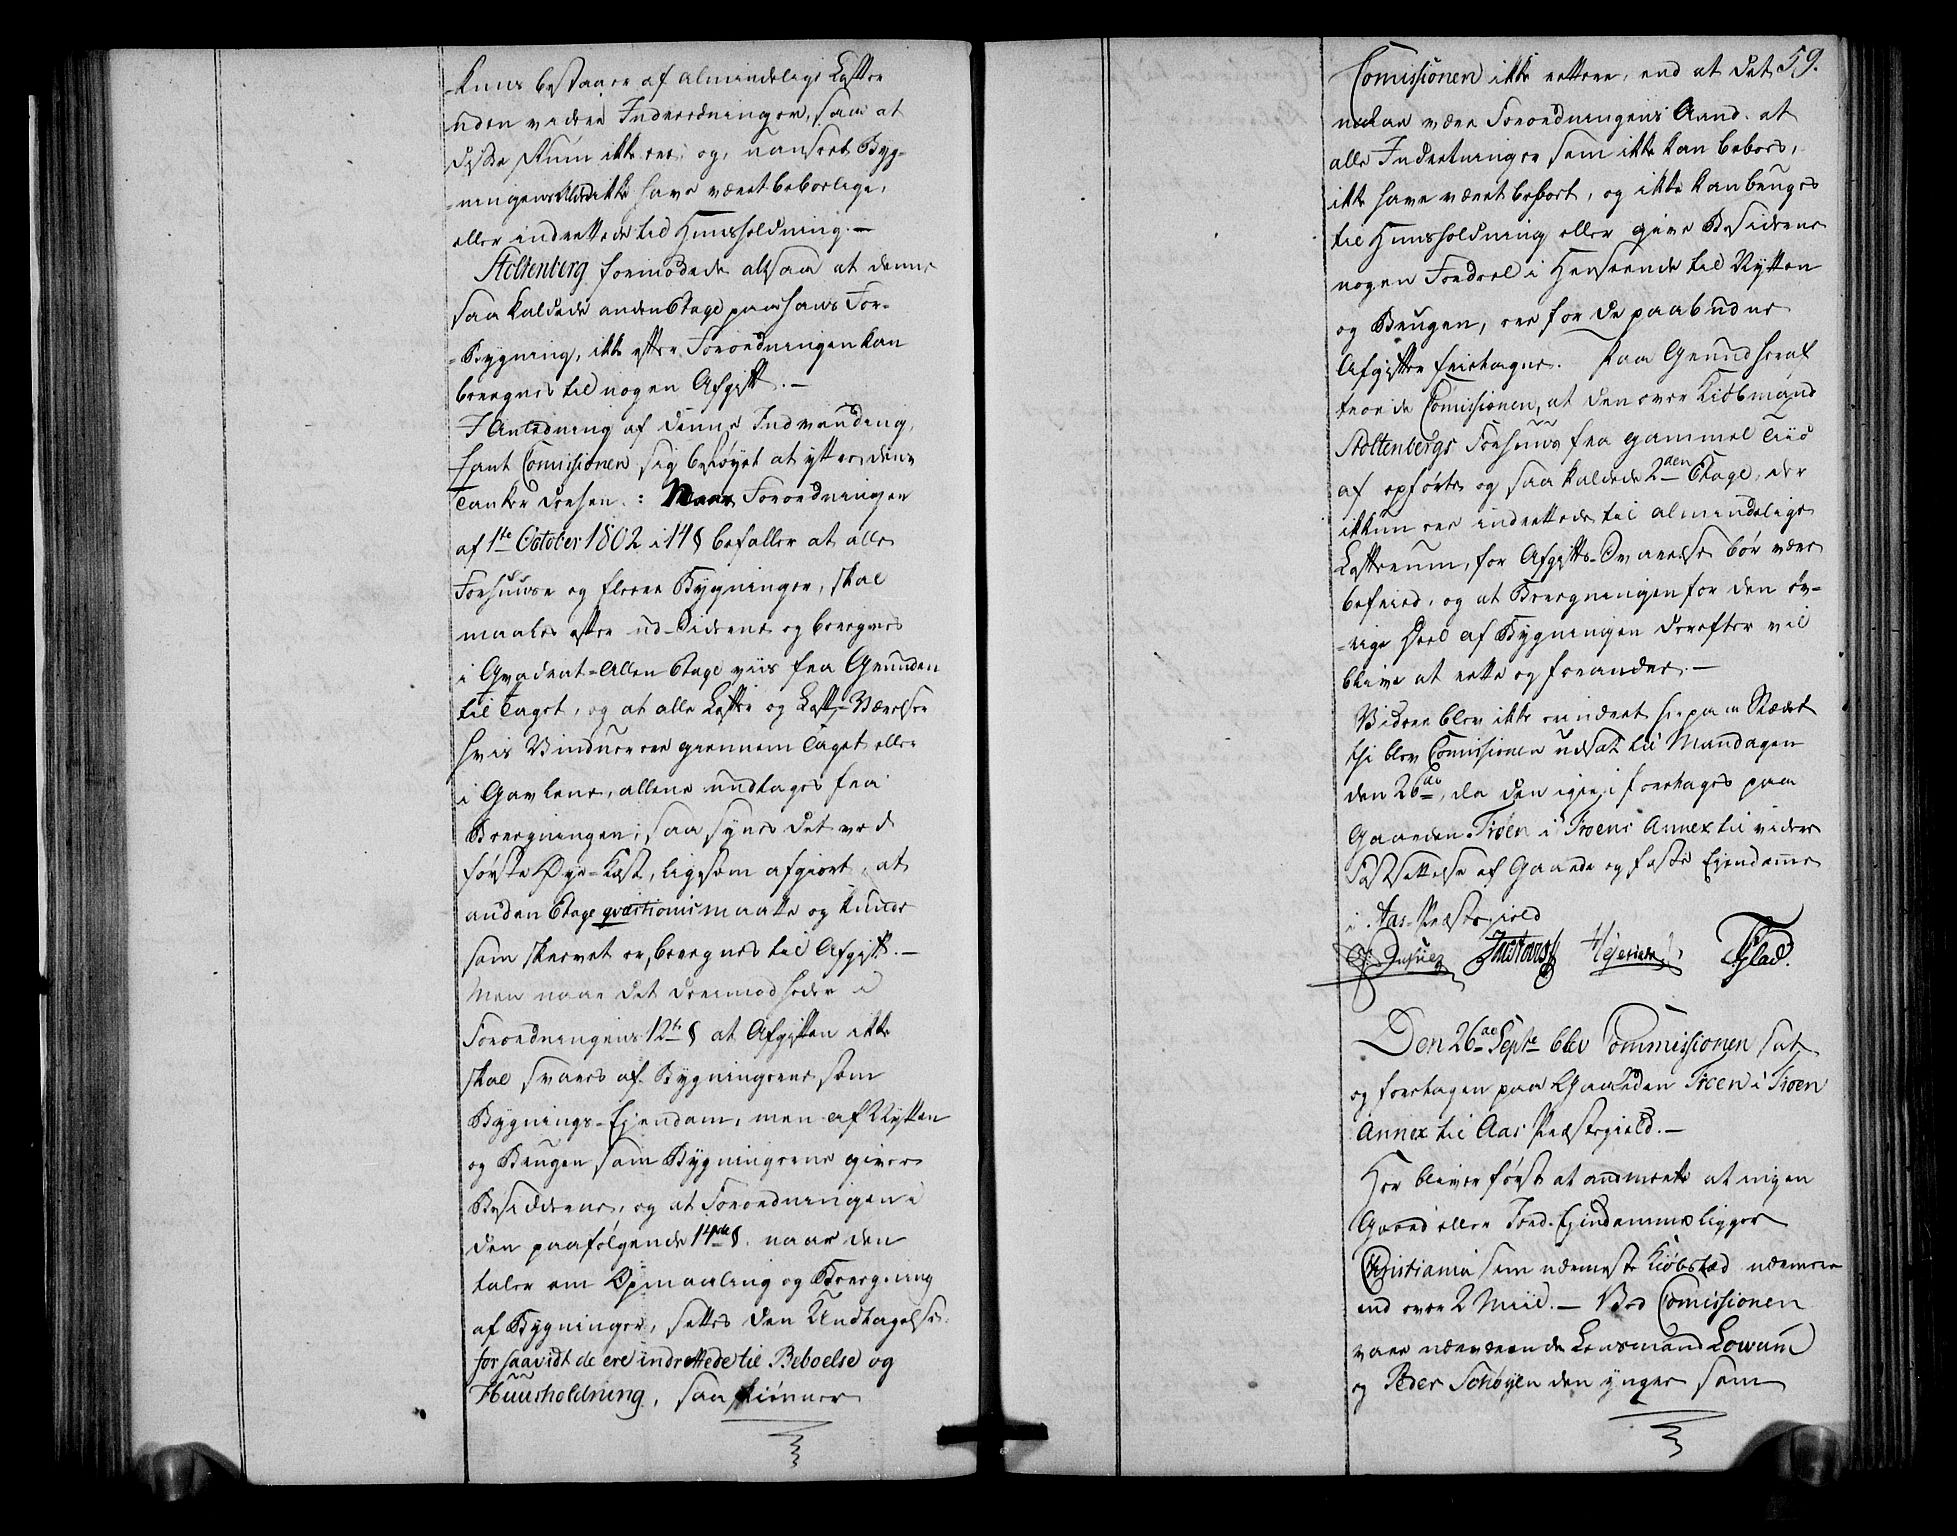 -kuns bestaaer af almindelige Lofter
uden videre Indreedninger, saa at
disse Rum ikke ere, og, uanseet Byg-
-ningens Ælde ikke have været beboelige,
eller indrettede til Huusholdning. —
Stoltenberg formodede altsaa at denne
saa kaldede anden Etage paa hans For-
-Bygning, ikke efter Forordningen kan
beregnes til nogen Afgift. —
I Anledning af denne Indvending,
fant Comissionen sig beføyet at yttre dens
Tanker derhen. : Naar Forordningen
af 1te October 1802 i 14 § befaller at alle
Forhuuse og fleere Bygninger, skal
maales efter ud-Siderne og beregnes
i Qvadrat-Allen Etage viis fra Grunden
til Taget, og at alle Lofter og Loft-Værelser
hvis Vinduer ere giennem Taget eller
i Gavlene, allene undtages fra
Beregningen; saa synes det ved
første Øye-Kast, ligesom afgiort, at
anden Etage qvæstionis maatte og kunde
som skeevet er, beregnes til Afgift. —
Men naar det derimod heder i
Forordningens 12te § at Afgiften ikke
skal svares af Bygningerne som
Bygnings-Ejendom, men af Nytten
og Brugen som Bygningerne giver
Besidderne, og at Forordningen i
den paafølgende 14de §. naar den
taler om Opmaaling og Beregning
af Bygninger, sætter den Undtagelse
for saavidt de ere indrettede til Beboelse og
Huusholdning, saa skiønner
59.
Comissionen ikke rettere, end at det
maae være Forordningens Aand. at
alle Indretninger som ikke kan beboes,
ikke have været beboet, og ikke kan bruges
til Huusholdning eller give Besidderne
nogen Fordeel i Henseende til Nytten
og Brugen, ere for de paabudne
Afgifter frietagne. Paa Grund heraf
troede Comissionen, at den over Kiøbmand
Stoltenbergs Forhuus fra gammel Tiid
af opførte og saa kaldede 2den Etage, der
ikkun ere indrettede til almindelige
Lofterum, for Afgifts-Svarelse bør være
befried, og at Beregningen for den øv-
-rige Deel af Bygningen derefter vil
blive at rette og forandre. —
Videre blev ikke erindret her paa Stædet
thi blev Comissionen udsat til Mandagen
den 26de, da den igien foretages paa
Gaarden Troen i Troens Annex til videre
Fastsettelse af Gaarde og faste Ejendomme
i Aas-Præstegield
Den 26de Septr blev Commissionen sat
og foretagen paa Gaarden Troen i Troen
Annex til Aas Præstegield. —
Her bliver først at anmerke at ingen
Gaard eller Jord-Ejendomme ligger
Christiania som nærmeste Kiøbstæd nærmere
end over 2 Miil. — Ved Comissionen
vare nærværende Lensmand Lowum
og Peder Schøyen den yngre som